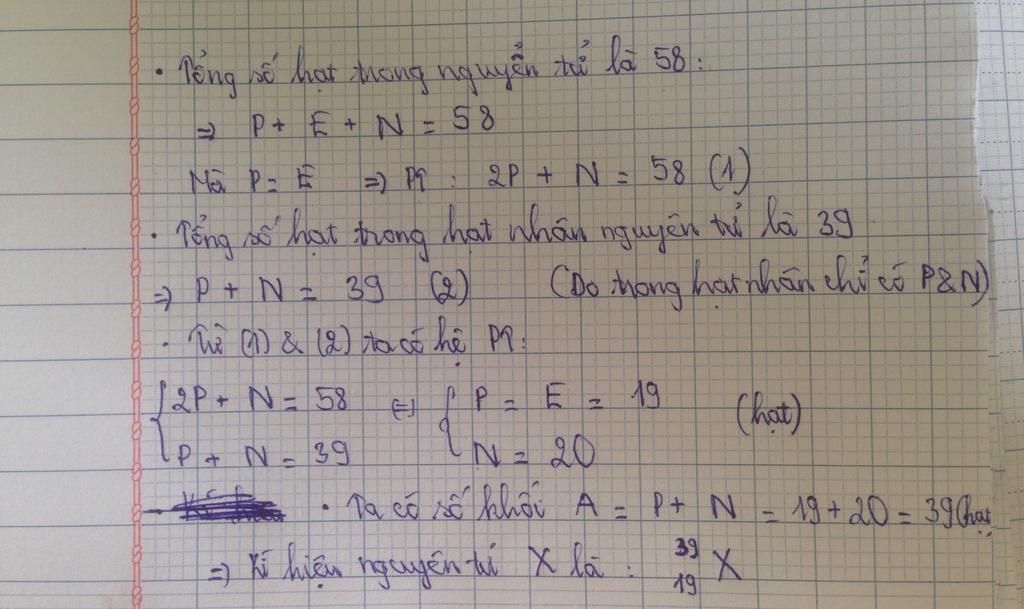 • Tổng số hạt trong nguyên tử là 58:
=> P + E + N = 58
Mà P = E => PT: 2P + N = 58 (1)
• Tổng số hạt trong hạt nhân nguyên tử là 39
=> P + N = 39 (2) (Do trong hạt nhân chỉ có P&N)
• Từ (1) & (2) ta có hệ PT:
{ 2P + N = 58 <=> { P = E = 19 (hạt)
P + N = 39 N = 20
• Ta có số khối A = P + N = 19 + 20 = 39 (hạt
=> Kí hiệu nguyên tử X là: ³⁹₁₉X